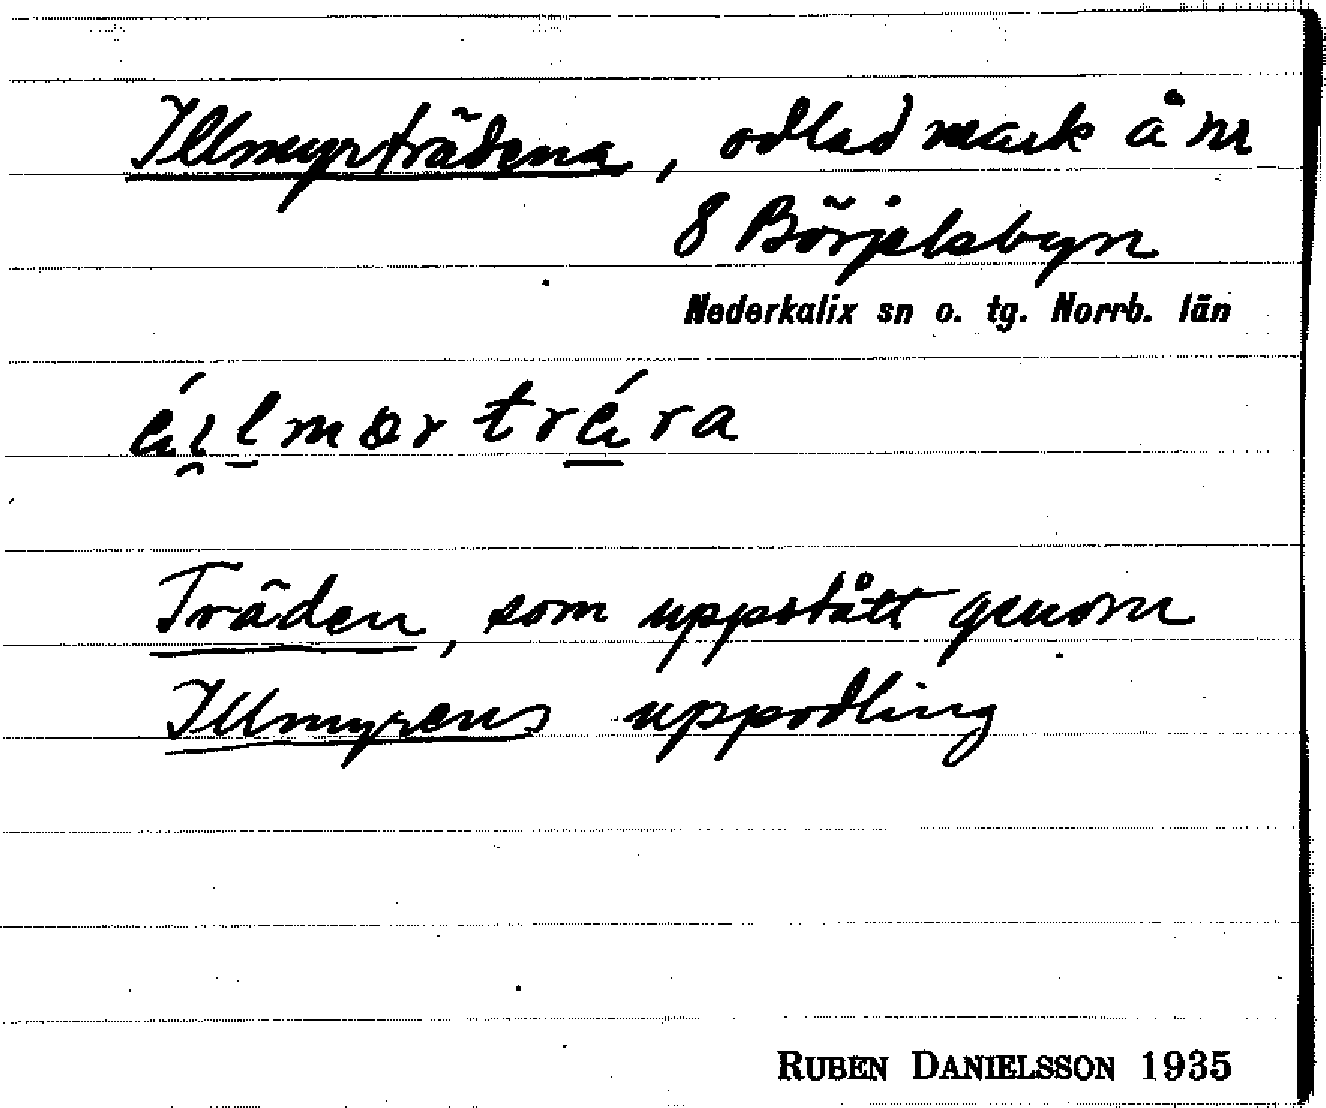 Illmyrträdena, odlad mark å nr
8 Börjelsbyn
Nederkalix sn o. tg. Norrb. län
Träden, som uppstått genom
Illmyrens uppodling
RUBEN DANIELSSON 1935